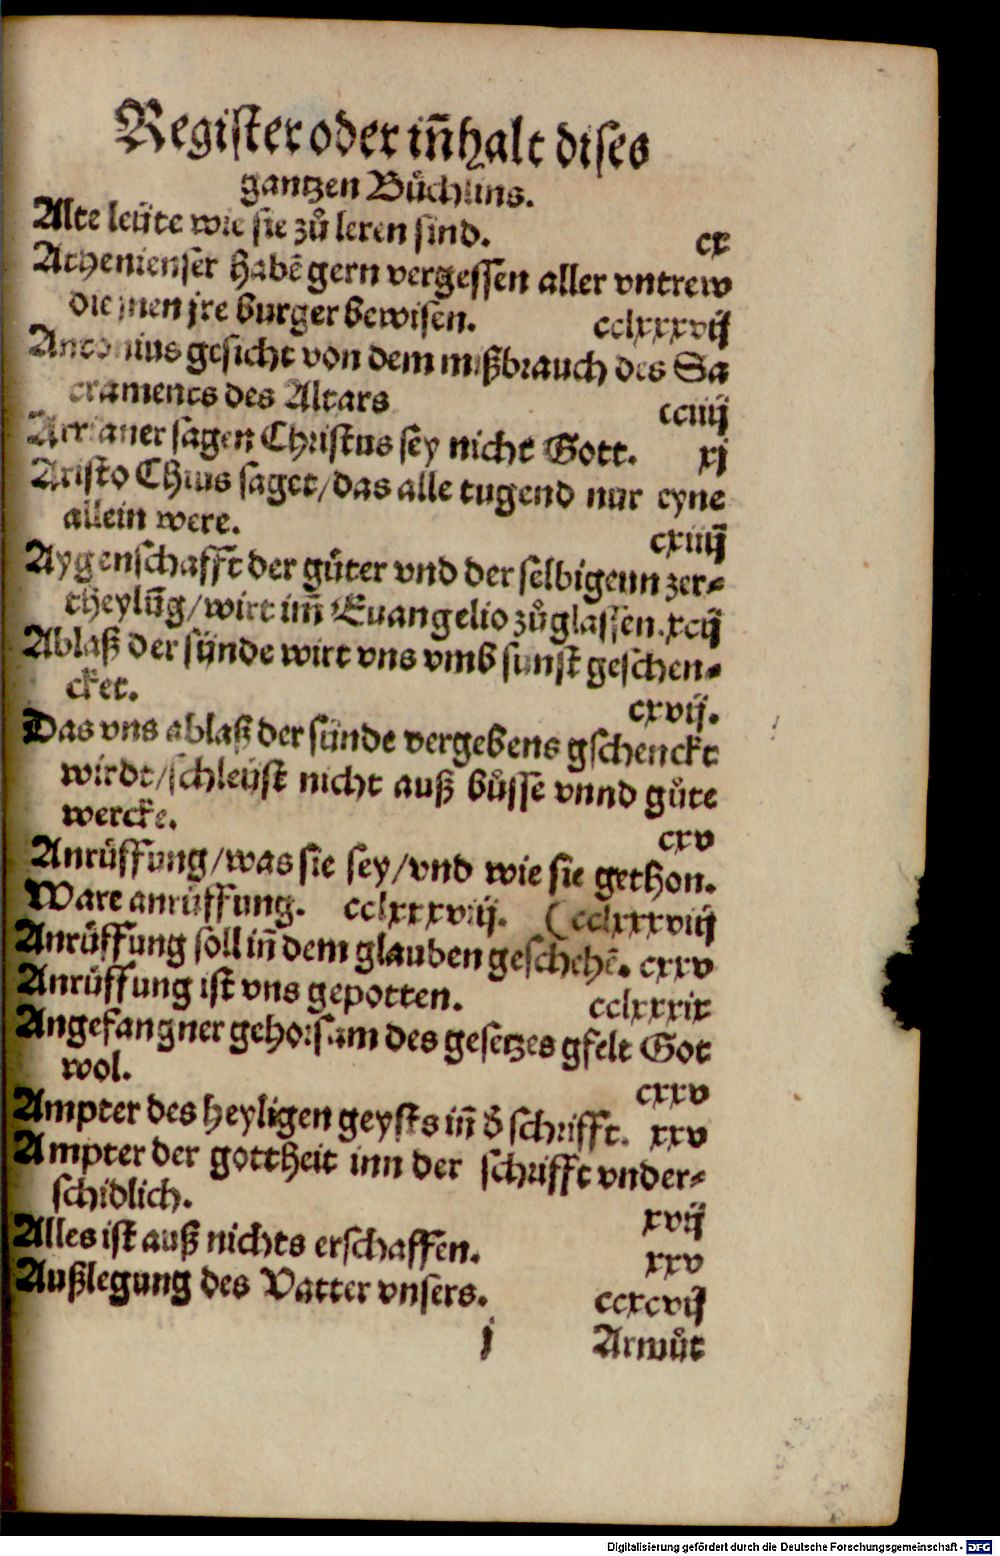 Register oder iñhalt dises
gantzen Bůchlins.
Alte leüte wie sie zů leren sind. cx
Athenienser habẽ gern vergessen aller vntrew
die jnen jre burger bewisen. cclxxxvij
Antonius gesicht von dem mißbrauch des Sa
craments des Altars cciiij
Arrianer sagen Christus sey nicht Gott. xj
Aristo Chius saget/das alle tugend nur eyne
allein were. cxiiij
Aygenschafft der gůter vnd der selbigenn zer⸗
theylũg/wirt im̃ Euangelio zůglassen. xcij
Ablaß der sünde wirt vns vmb sunst geschen⸗
cket. cxvij.
Das vns ablaß der sünde vergebens gschenckt
wirdt/schleüst nicht auß bůsse vnnd gůte
wercke. cxv
Anrůffung/was sie sey/vnd wie sie gethon.
Ware anrüffung. cclxxxviij. (cclxxxviij
Anrůffung soll iñ dem glauben geschehẽ. cxxv
Anrůffung ist vns gepotten. cclxxxix
Angefangner gehorsam des gesetzes gfelt Got
wol. cxxv
Ampter des heyligen geysts iñ d̓ schrifft. xxv
Ampter der gottheit inn der schrifft vnder⸗
schidlich. xvij
Alles ist auß nichts erschaffen. xxv
Außlegung des Vatter vnsers. ccxcvij
j Armůt
Digitalisierung gefördert durch die Deutsche Forschungsgemeinschaft - DFG